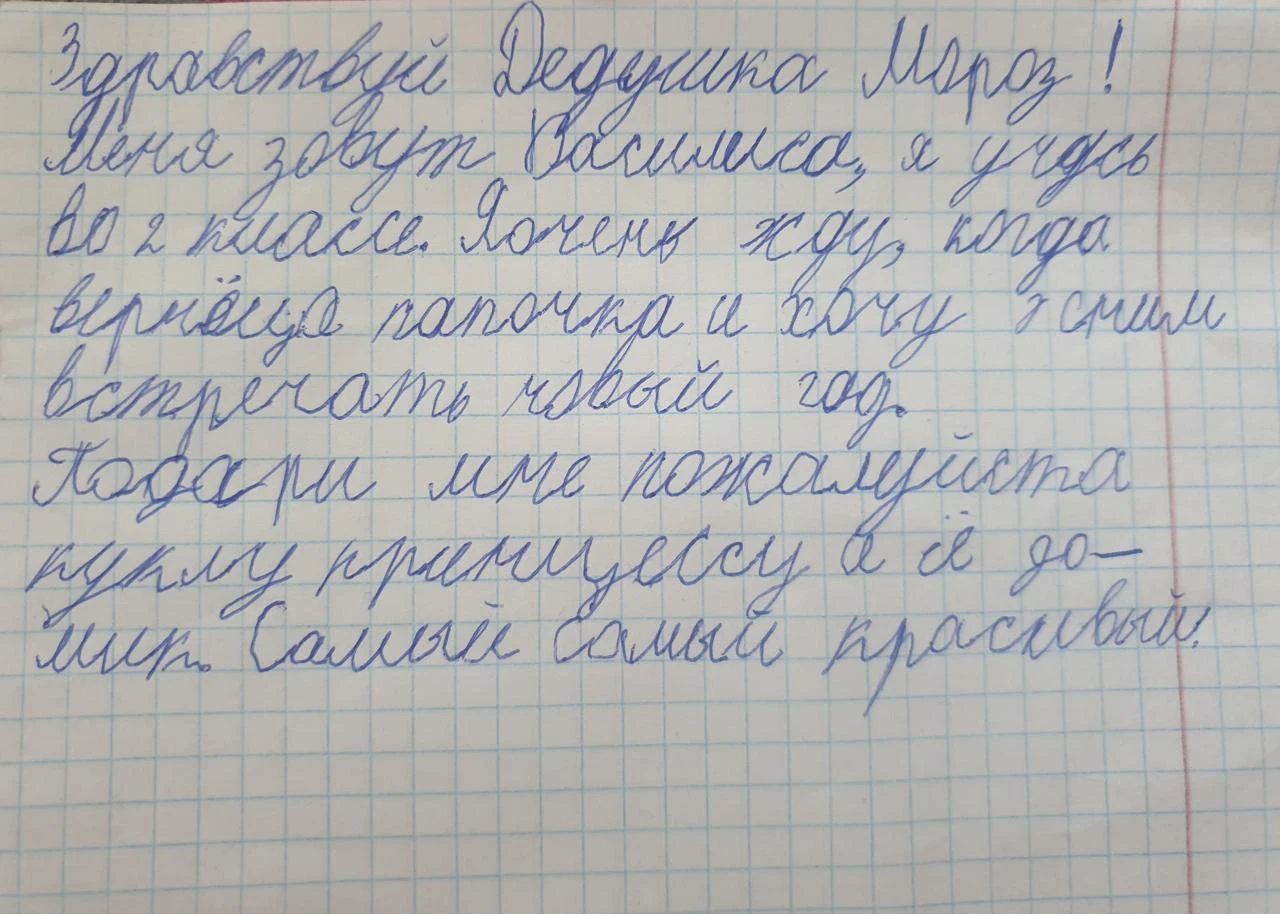 Здравствуй Дедушка Мороз!
Меня зовут Василиса, я учусь
во 2 классе. Я очень жду, когда
вернёца папочка и хочу с ним
встречать новый год.
Подари мне пожалуйста
куклу принцессу и её до–
мик. Самый самый красивый!